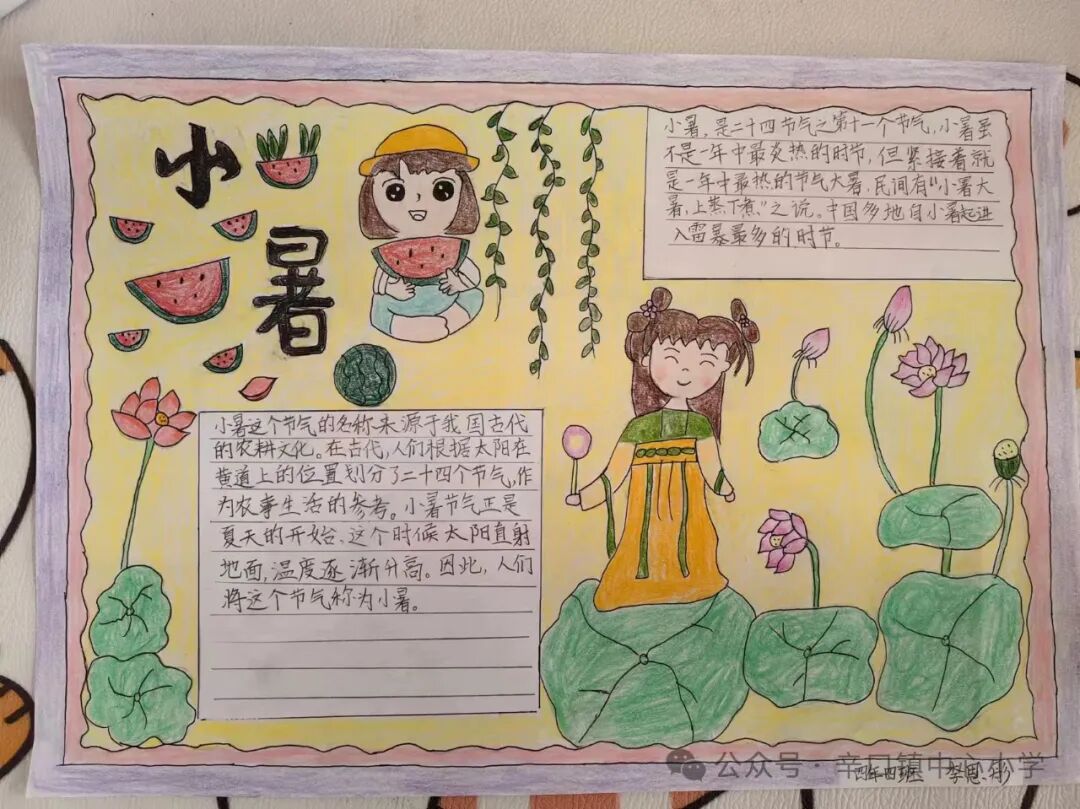 小暑
小暑，是二十四节气之第十一个节气，小暑虽
不是一年中最炎热的时节，但紧接着就
是一年中最热的节气大暑，民间有“小暑大
暑，上蒸下煮”之说。中国多地自小暑起进
入雷暴最多的时节。
小暑这个节气的名称来源于我国古代
的农耕文化。在古代，人们根据太阳在
黄道上的位置划分了二十四个节气，作
为农事生活的参考。小暑节气正是
夏天的开始、这个时候太阳直射
地面，温度逐渐升高。因此，人们
将这个节气称为小暑。
公众号·辛口镇中心小学
四年四班 李思